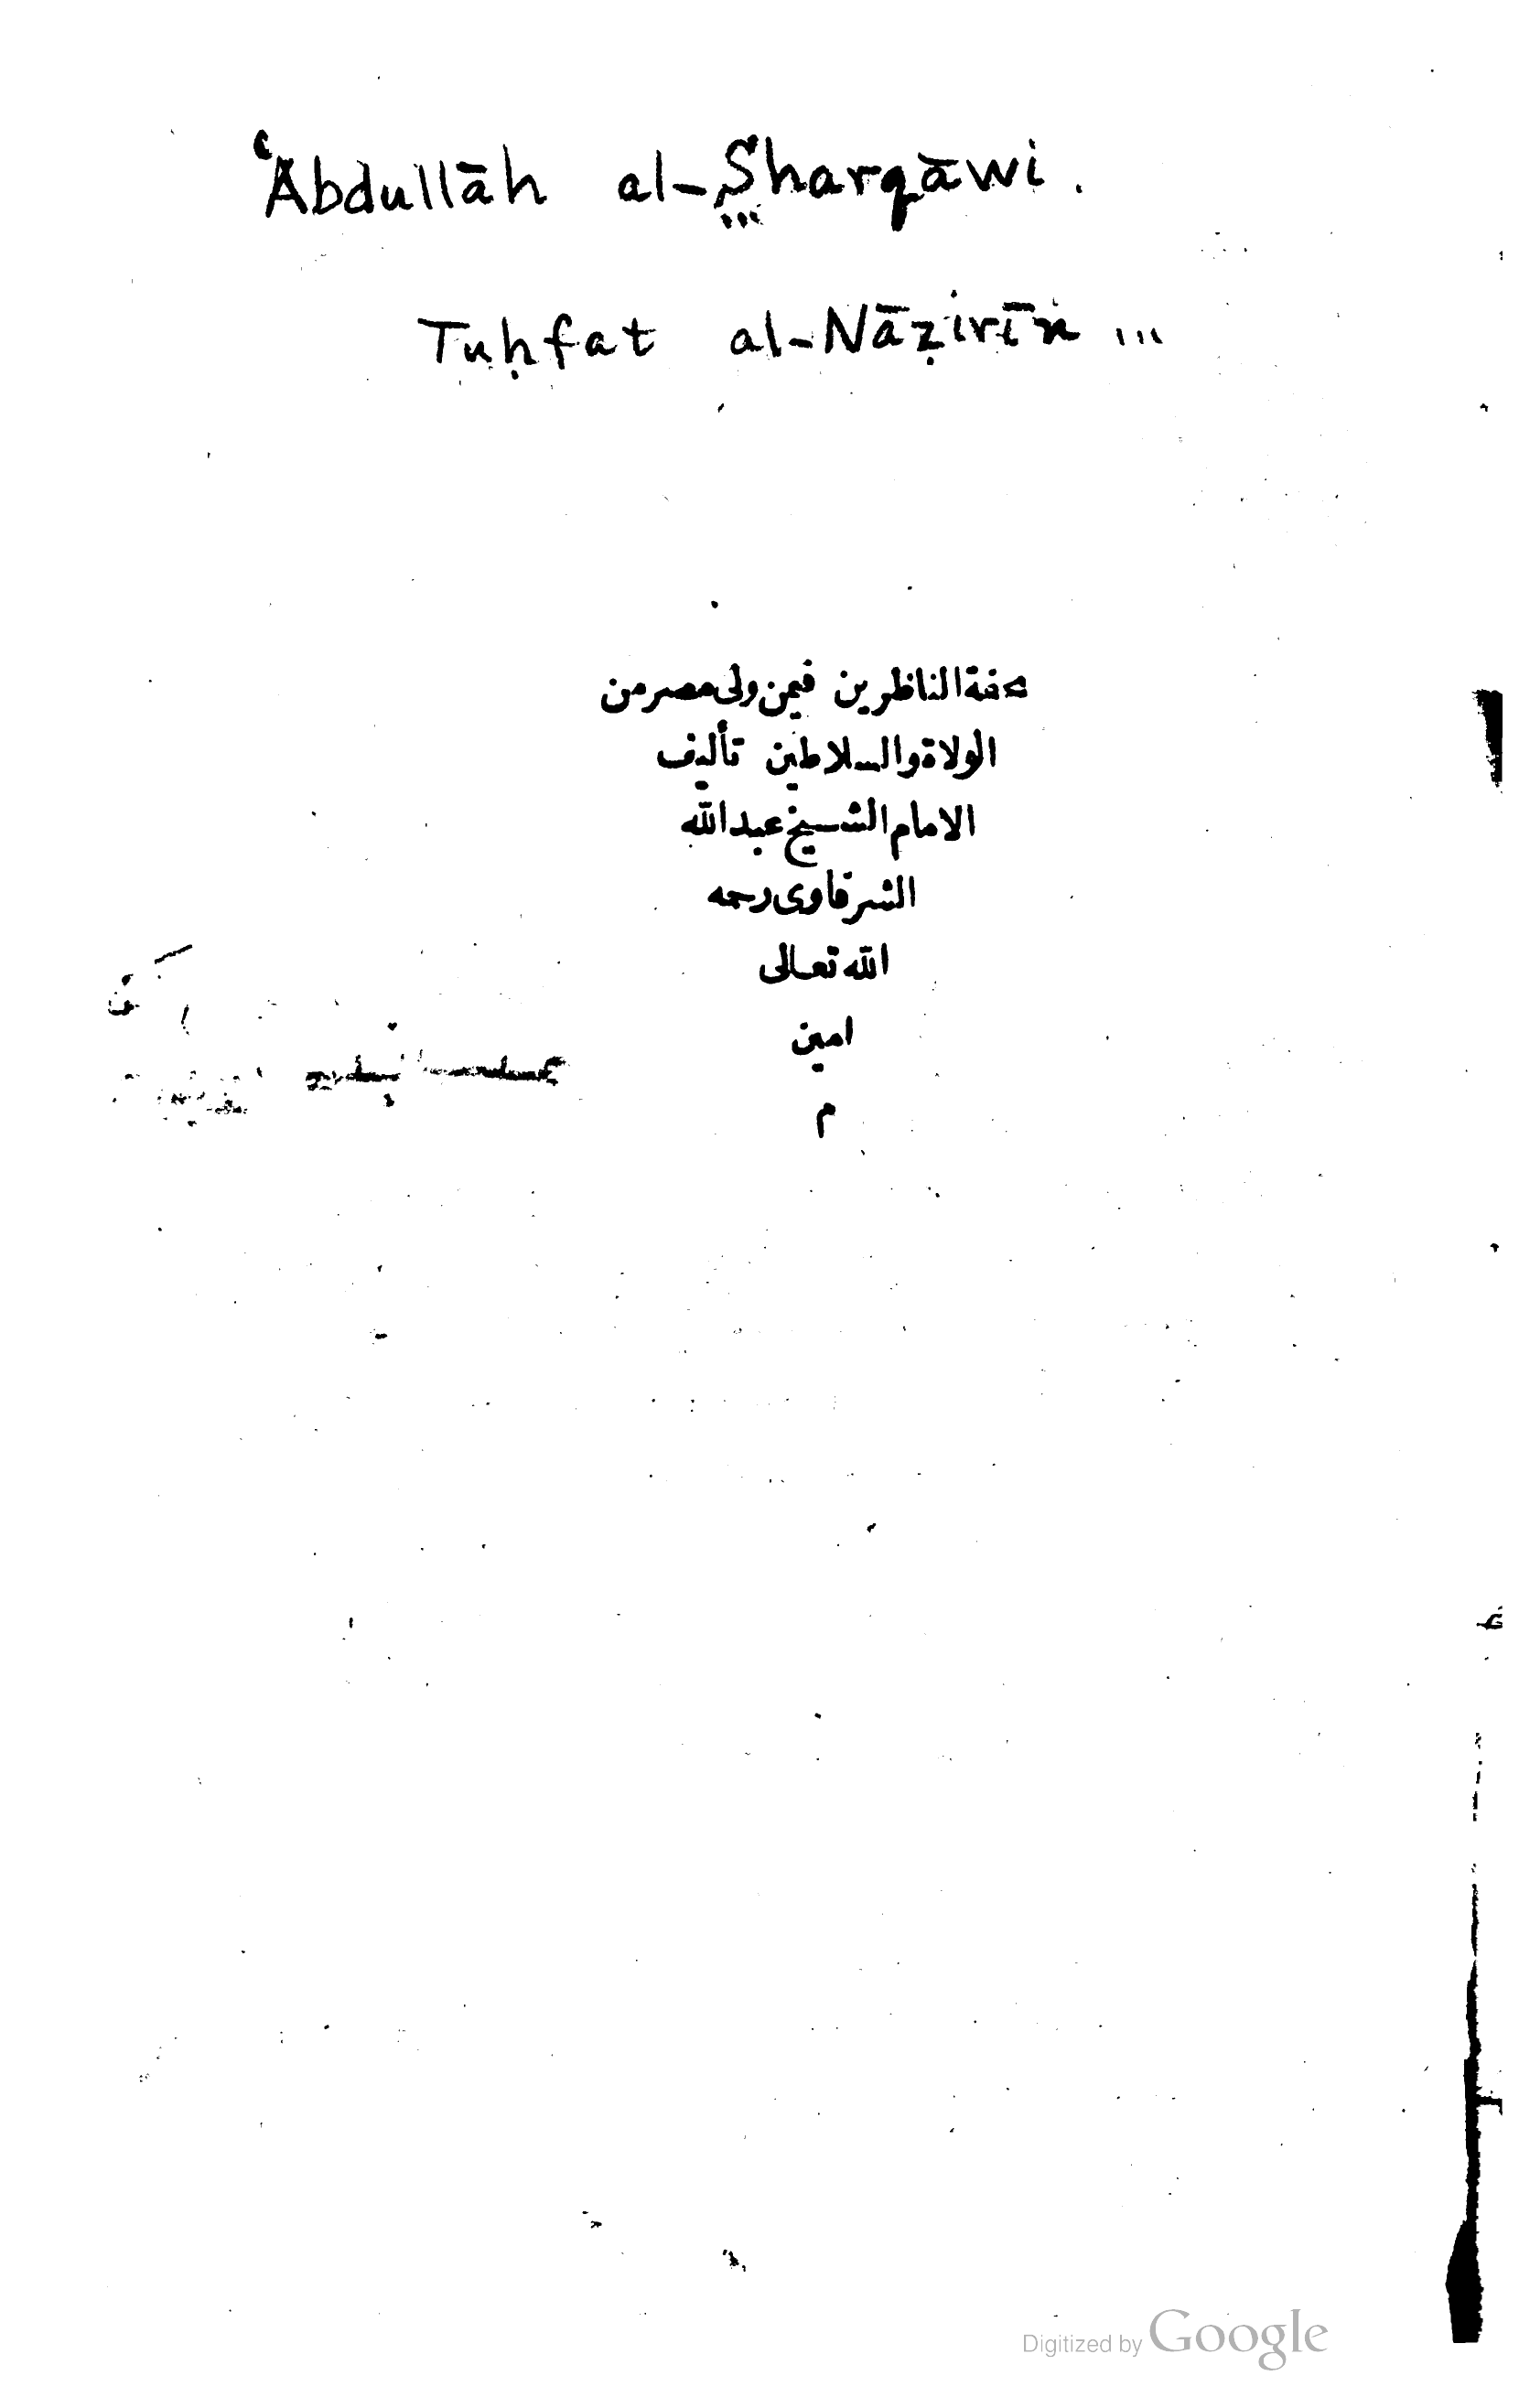 ʿAbdullāh al-Sharqāwi.
Tuḥfat al-Nāẓirīn ...
تحفة الناظرين فيمن ولى مصر من
الولاة والسلاطين تأليف
الامام الشيخ عبدالله
الشرقاوى رحمه
الله تعالى
امين
م
Digitized by Google